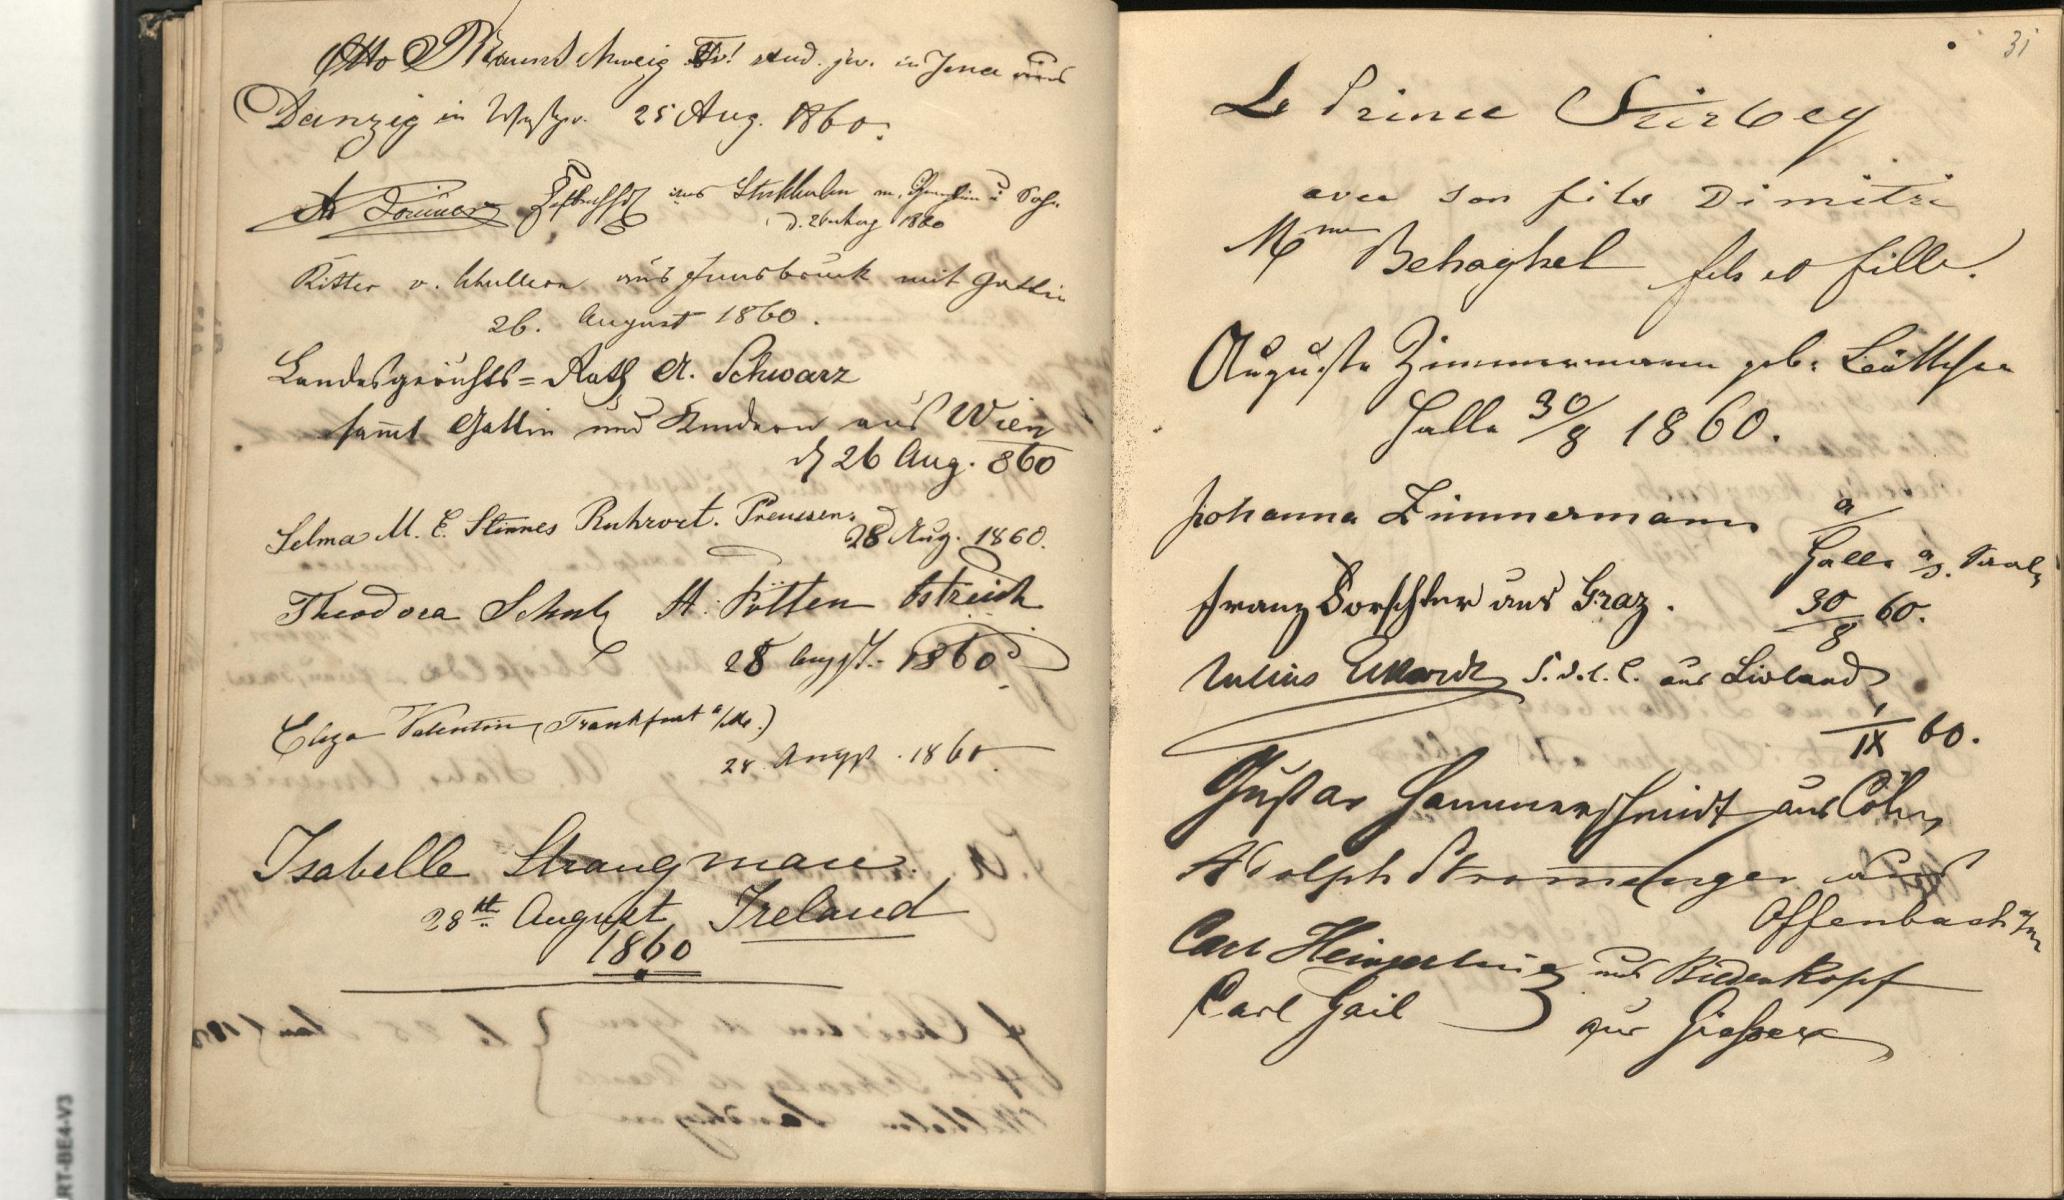 Otto Braunschweig stud. jur. in Jena aus
Danzig in Westpr. 25 Aug. 1860.
aus Stockholm m. u. Sohn
1860
Ritter v. Schullern aus Innsbruck mit Gattin
26. August 1860.
Landesgerichts=Rath A. Schwarz
sammt Gattin und Kindern aus Wien
d 26 Aug. 860
Selma M. E. Stinnes Ruhrort. Preussen.
28 Aug. 1860.
Theodora Schulz St. Pölten Östreich
28 August 1860.
Eliza Valentin (Frankfurt a/M.)
28 August. 1860.
Isabelle Strangman.
28th August Ireland
1860
31
Le Prince Stirbey
avec son fils Dimitri
Mme Behaghel fils et fille.
Auguste Zimmermann geb. Böttcher
Halle 30/8 1860.
Johanna Zimmermann a/
Halle a/S. Saale
Franz Forschter aus Graz. 30/8 60.
Julius Eckardt aus Livland
1/IX 60.
Gustav Hammerschmidt aus Cöln
Adolph Stromberger aus
Offenbach a/m
Carl aus Biedenkopf
Carl Gail aus Giessen